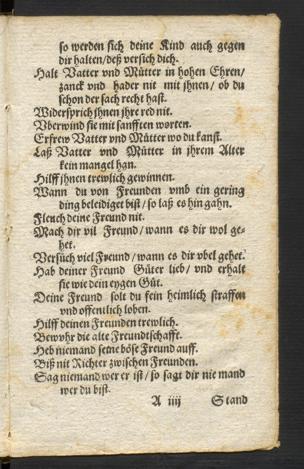 so werden sich deine Kind auch gegen
dir halten/deß versich dich.
Halt Vatter vnd Mütter in hohen Ehren/
zanck vnd hader nit mit jhnen/ ob du
schon der sach recht hast.
Widersprich jhnen jhre red nit.
Vberwind sie mit sanfften worten.
Erfrew Vatter vnd Mütter wo du kanst.
Laß Vatter vnd Mütter in jhrem Alter
kein mangel han.
Hilff jhnen trewlich gewinnen.
Wann du von Freunden vmb ein gering
ding beleidiget bist/ so laß es hin gahn.
Fleuch deine Freund nit.
Mach dir vil Freund/ wann es dir wol ge-
het.
Versüch viel Freund/ wann es dir vbel gehet.
Hab deiner Freund Güter lieb/ vnd erhalt
sie wie dein eygen Güt.
Deine Freund solt du fein heimlich straffen
vnd offentlich loben.
Hilff deinen Freunden trewlich.
Bewohr die alte Freundtschafft.
Heb niemand seine böse Freund auff.
Biß nit Richter zwischen Freunden.
Sag niemand wer er ist/ so sagt dir nie mand
wer du bist.
A iiij Stand